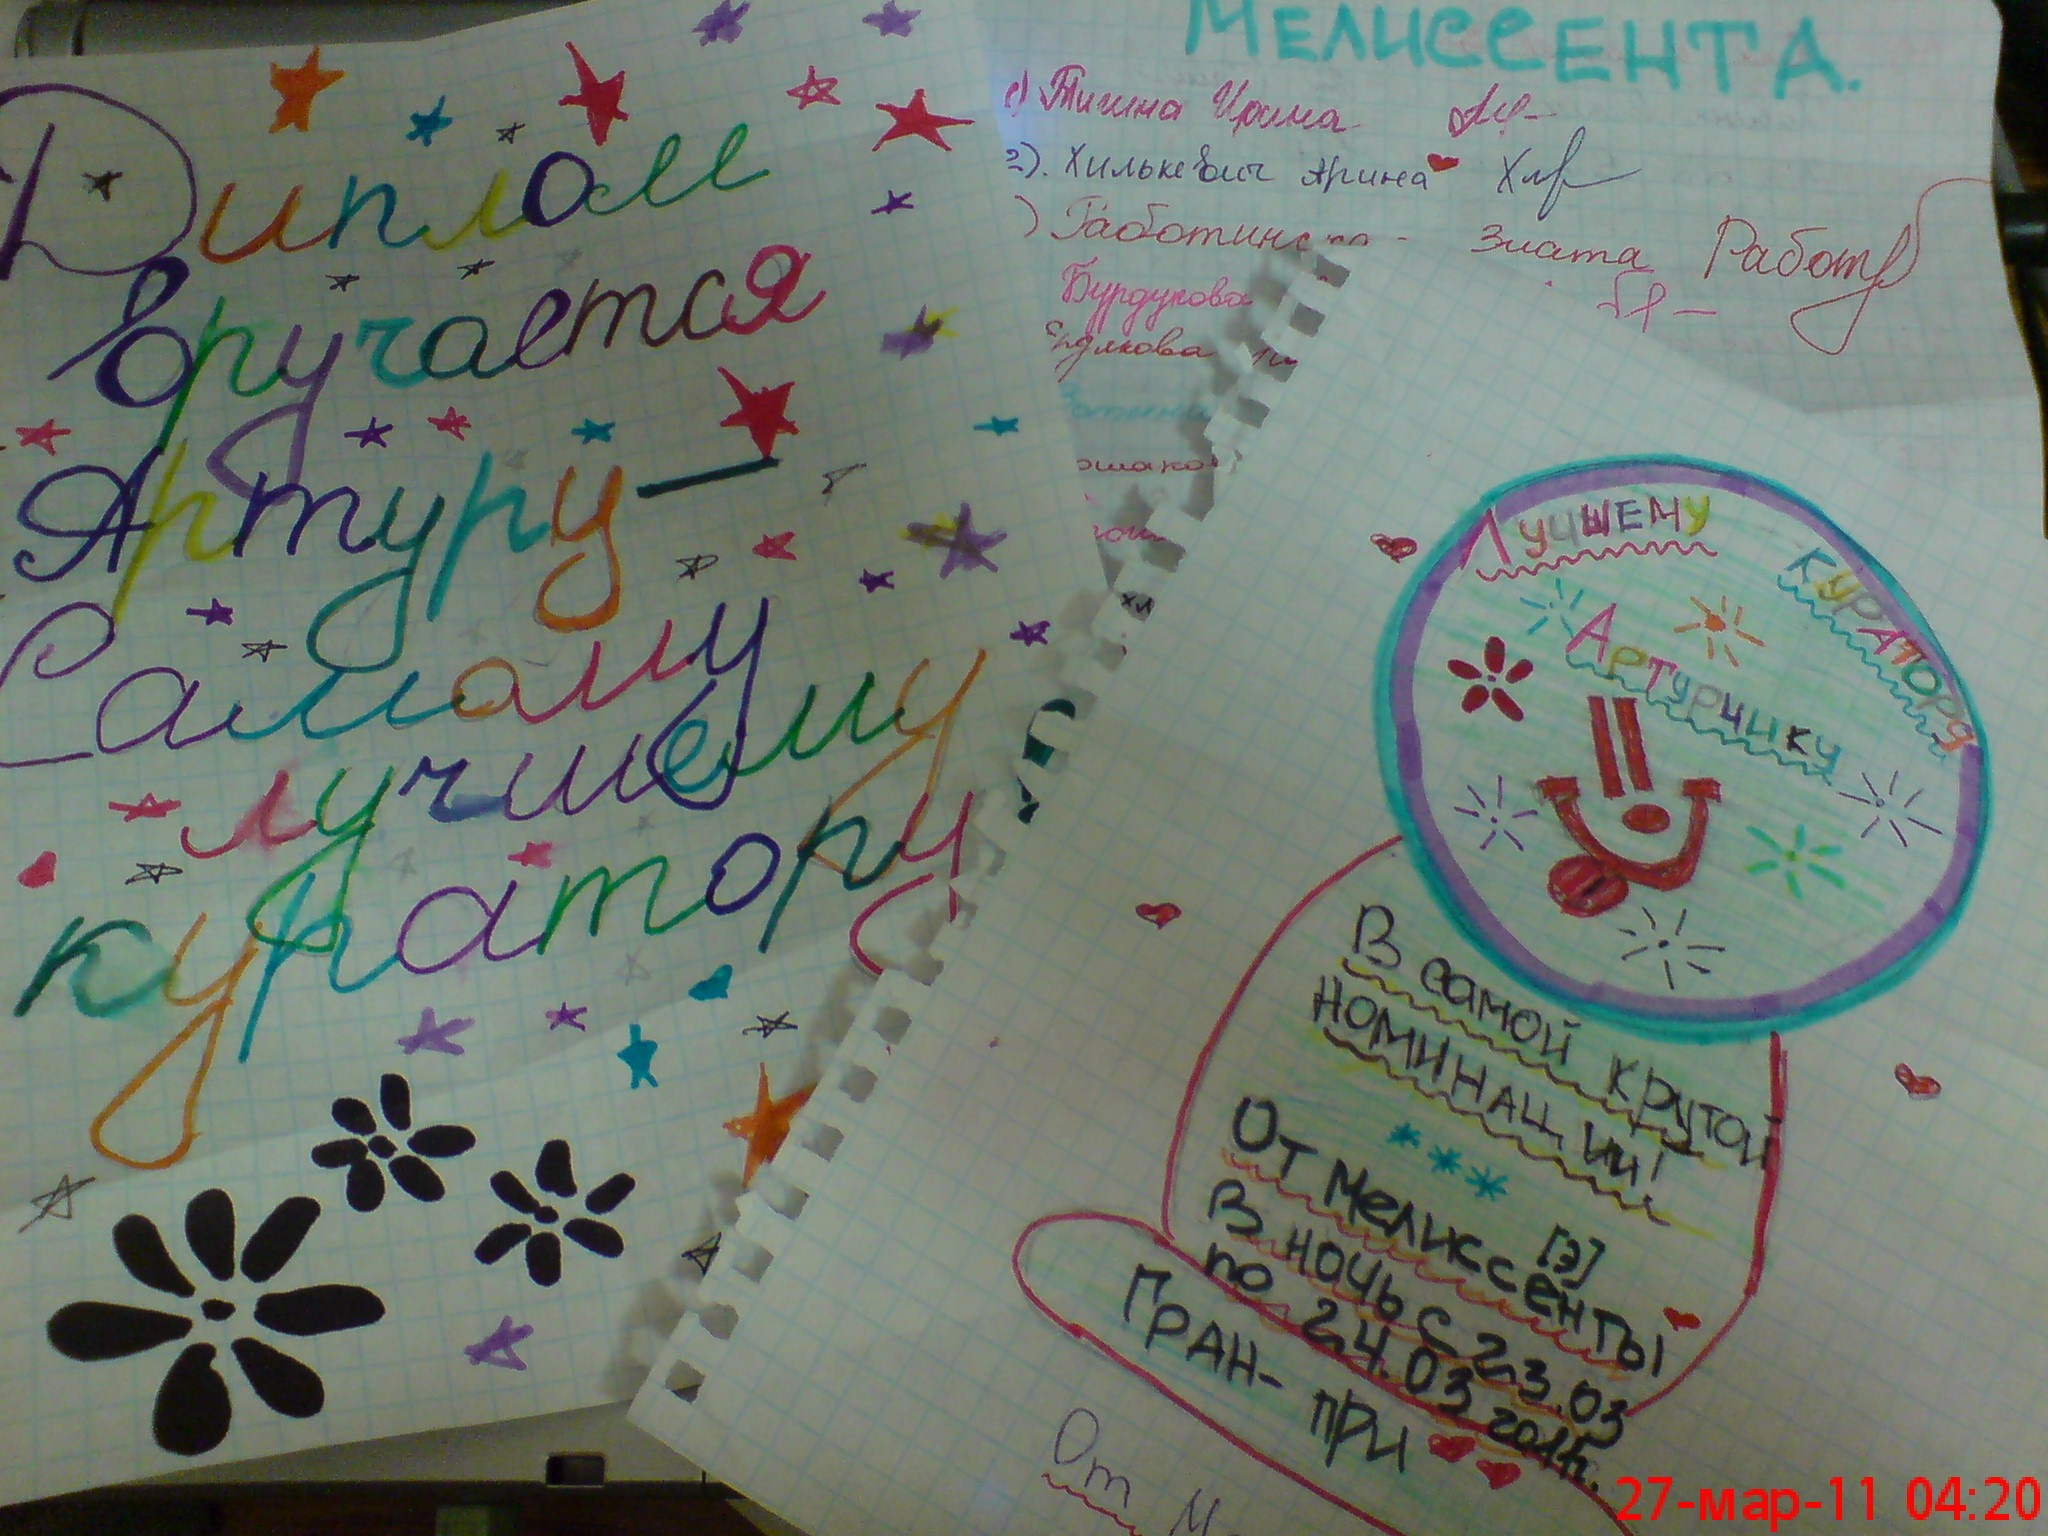 Диплом
вручается
Артуру —
Самому
лучшему
куратору
МЕЛИССЕНТА.
1) Тигина Ирина
2). Хилькевич Арина Хлр
) Работинская - Злата Работ
Бурдукова
ЛУЧШЕМУ
КУРАТОРУ
АРТУРЧИКУ
В самой крутой
номинации!
***
От Мелиссенты
[э]
В ночь с 23.03
по 24.03 2011г.
ГРАН-ПРИ
От М
27-мар-11 04:20